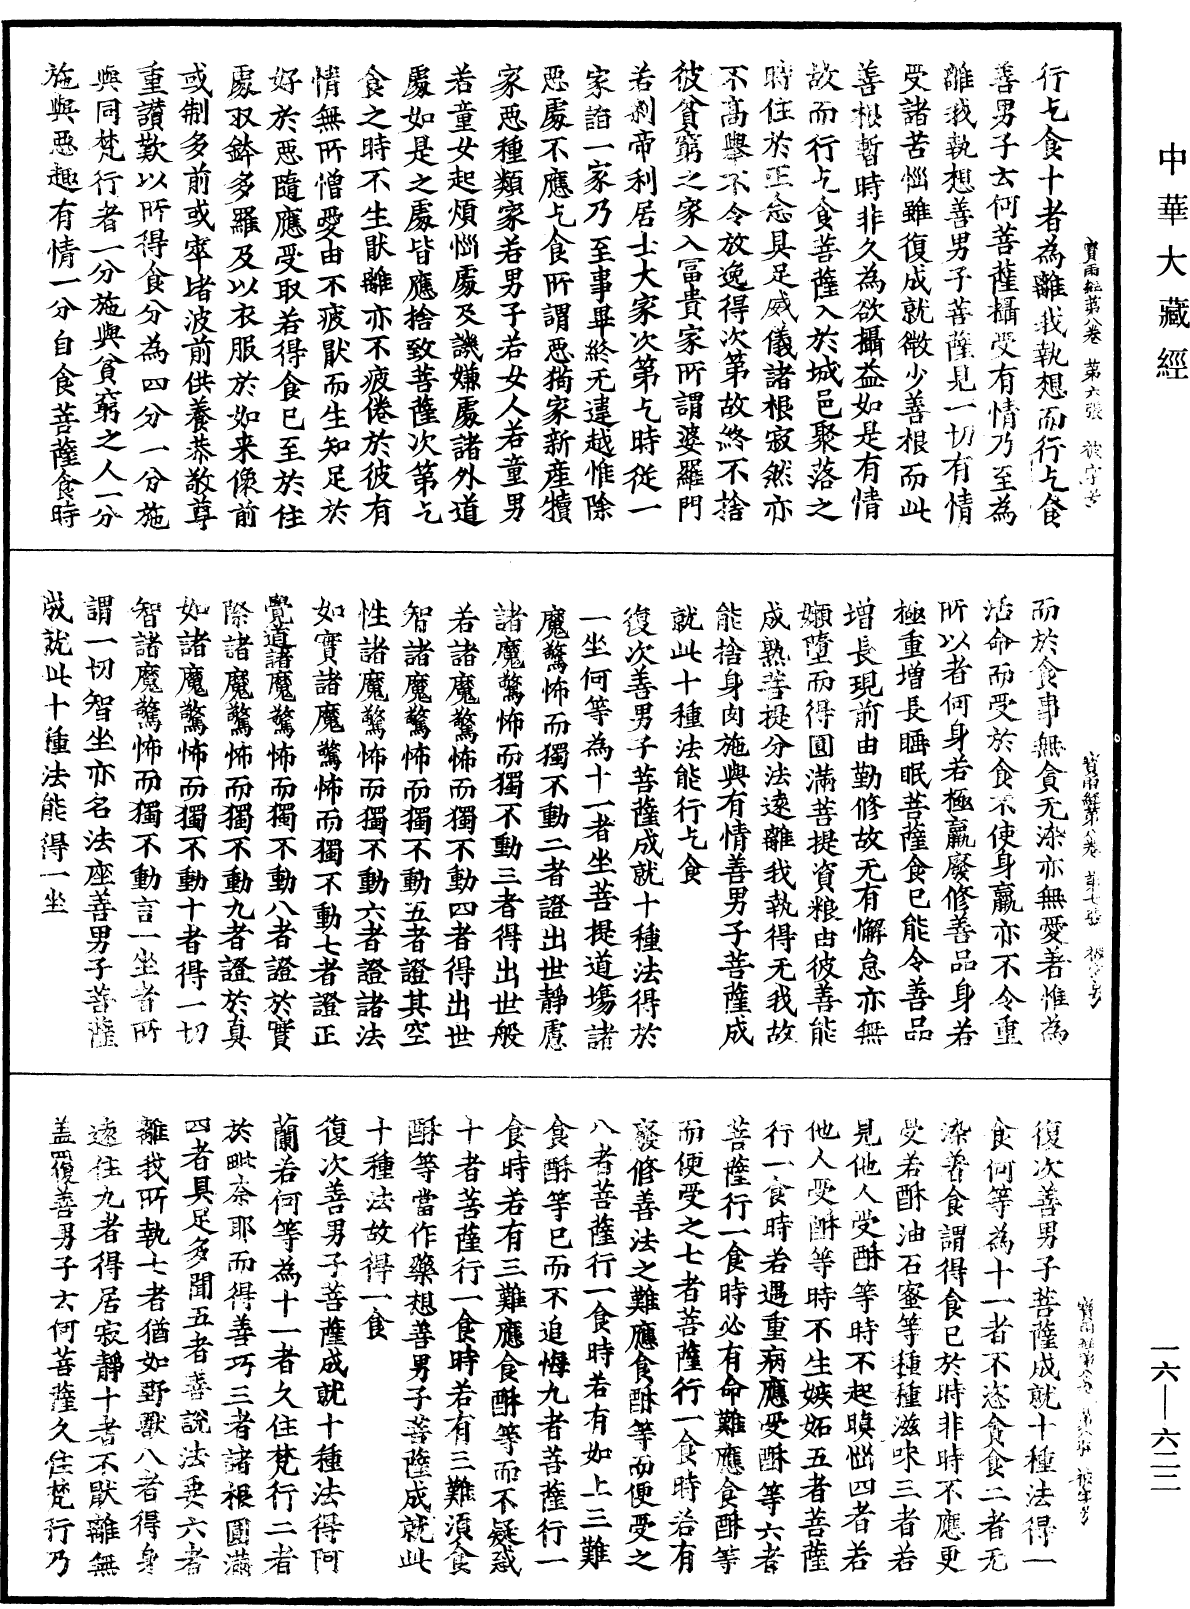 中華大藏經
寶雨經第八卷 第六張
行乞食十者為離我執想而行乞食
善男子云何菩薩攝受有情乃至為
離我執想善男子菩薩見一切有情
受諸苦惱雖復成就微少善根而此
善根暫時非久為欲攝益如是有情
故而行乞食菩薩入於城邑聚落之
時住於正念具足威儀諸根寂然亦
不高舉不令放逸得次第故終不捨
彼貧窮之家入冨貴家所謂婆羅門
若剎帝利居士大家次第乞時從一
家詣一家乃至事畢終无違越惟除
惡處不應乞食所謂惡猘家新產犢
家惡種類家若男子若女人若童男
若童女起煩惱處及譏嫌處諸外道
處如是之處皆應捨致菩薩次第乞
食之時不生猒離亦不疲倦於彼有
情無所憎愛由不疲猒而生知足於
好於惡隨應受取若得食已至於住
處収鉢多羅及以衣服於如来像前
或制多前或窣堵波前供養恭敬尊
重讃歎以所得食分為四分一分施
與同梵行者一分施與貧窮之人一分
施與惡趣有情一分自食菩薩食時
寶雨經第八卷 第七張
而於食事無貪无染亦無愛善惟為
活命而受於食不使身羸亦不令重
所以者何身若極羸廢修善品身若
極重增長睡眠菩薩食已能令善品
增長現前由勤修故无有懈怠亦無
嬾墮而得圓滿菩提資粮由彼善能
成熟菩提分法遠離我執得无我故
能捨身肉施與有情善男子菩薩成
就此十種法能行乞食
復次善男子菩薩成就十種法得於
一坐何等為十一者坐菩提道場諸
魔驚怖而獨不動二者證出世靜慮
諸魔驚怖而獨不動三者得出世般
若諸魔驚怖而獨不動四者得出世
智諸魔驚怖而獨不動五者證其空
性諸魔驚怖而獨不動六者證諸法
如實諸魔驚怖而獨不動七者證正
覺道諸魔驚怖而獨不動八者證於實
際諸魔驚怖而獨不動九者證於真
如諸魔驚怖而獨不動十者得一切
智諸魔驚怖而獨不動言一坐者所
謂一切智坐亦名法座善男子菩薩
成就此十種法能得一坐
復次善男子菩薩成就十種法得一
食何等為十一者不恣貪食二者无
染善食謂得食已於時非時不應更
受若酥油石蜜等種種滋味三者若
見他人受酥等時不起瞋惱四者若
他人受酥等時不生嫉妬五者菩薩
行一食時若遇重病應受酥等六者
菩薩行一食時必有命難應食酥等
而便受之七者菩薩行一食時若有
廢修善法之難應食酥等而便受之
八者菩薩行一食時若有如上三難
食酥等已而不追悔九者菩薩行一
食時若有三難應食酥等而不疑惑
十者菩薩行一食時若有三難湏食
酥等當作藥想善男子菩薩成就此
十種法故得一食
復次善男子菩薩成就十種法得阿
蘭若何等為十一者久住梵行二者
於毗奈耶而得善巧三者諸根圓滿
四者具足多聞五者善說法要六者
離我所執七者猶如野獸八者得身
遠住九者得居寂靜十者不猒離無
盖覆善男子云何菩薩久住梵行乃
一六—六二二